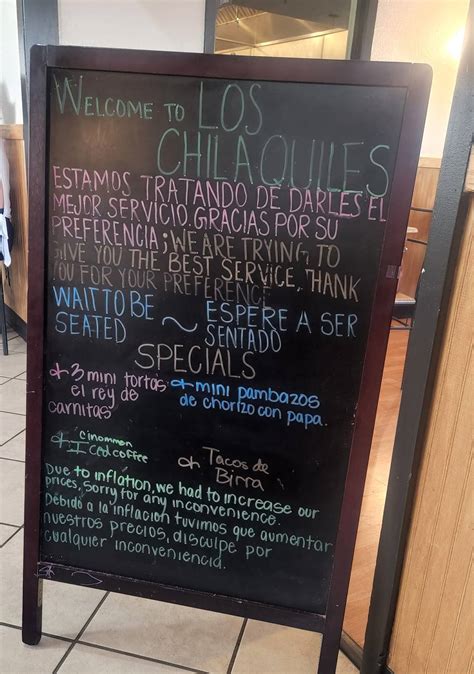 WELCOME TO LOS
CHILAQUILES
ESTAMOS TRATANDO DE DARLES EL
MEJOR SERVICIO. GRACIAS POR SU
PREFERENCIA; WE ARE TRYING TO
GIVE YOU THE BEST SERVICE, THANK
YOU FOR YOUR PREFERENCE
WAIT TO BE
SEATED
~
ESPERE A SER
SENTADO
SPECIALS
3 mini tortas
el rey de
carnitas
mini pambazos
de chorizo con papa.
cinommon
Iced coffee
Tacos de
Birra
Due to inflation, we had to increase our
prices, Sorry for any inconvenience.
Debido a la inflación tuvimos que aumentar
nuestros precios, disculpe por
cualquier inconveniencia.